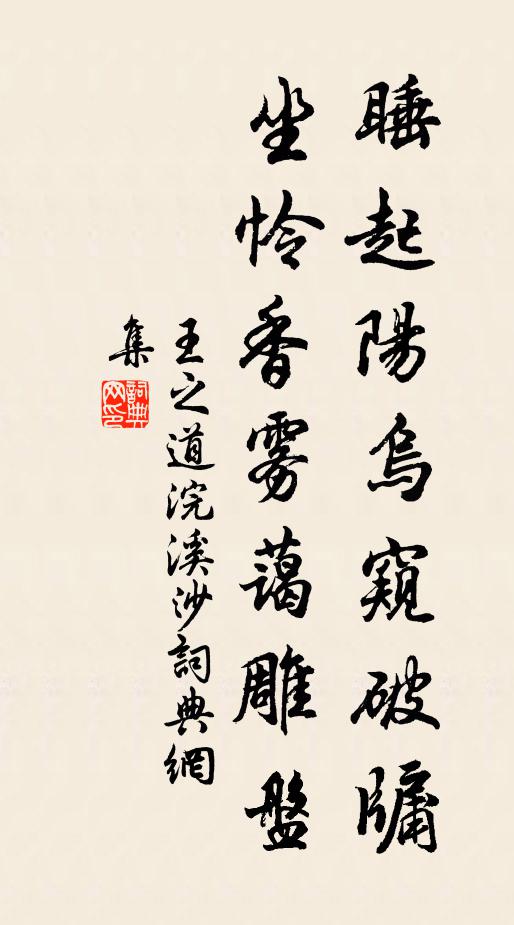 睡起陽烏窺破牖
坐怜香雾藹雕盤
王之道浣溪沙詞典網
集
詞典网印